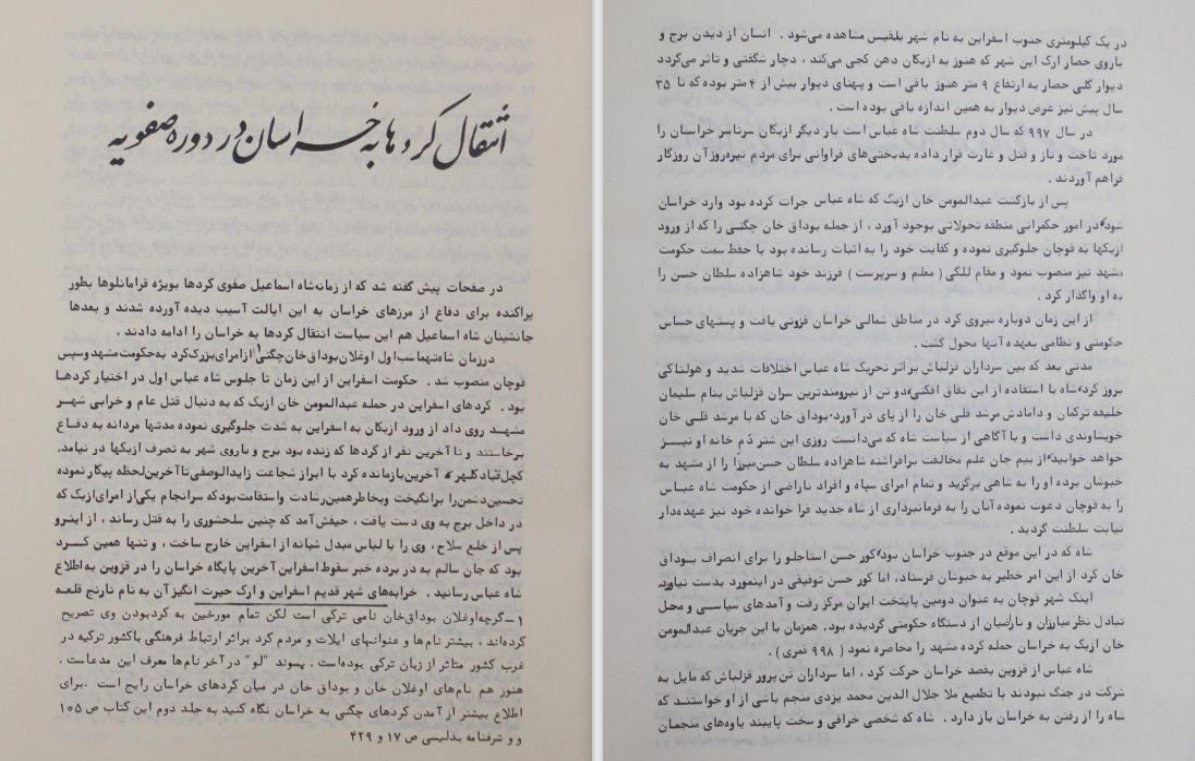 انتقال کردها به خراسان در دوره صفویه
در صفحات پیش گفته شد که از زمان شاه اسماعیل صفوی کردها بویژه قرامانلوها بطور
پراکنده برای دفاع از مرزهای خراسان به این ایالت آسیب دیده آورده شدند و بعدها
جانشینان شاه اسماعیل هم این سیاست انتقال کردها به خراسان را ادامه دادند .
درزمان شاه تهماسب اول اوغلان بوداق خان چگنی۱ از امرای بزرگ کرد به حکومت مشهد و سپس
قوچان منصوب شد . حکومت اسفراین از این زمان تا جلوس شاه عباس اول در اختیار کردها
بود . کردهای اسفراین در حمله عبدالمومن خان ازبک که به دنبال قتل عام و خرابی شهر
مشهد روی داد از ورود ازبکان به اسفراین به شدت جلوگیری نموده مدتها مردانه به دفاع
برخاستند و تا آخرین نفر از کردها که زنده بود برج و باروی شهر به تصرف ازبکها در نیامد.
کچل قباد کلهر که آخرین بازمانده کرد با ابراز شجاعت زایدالوصفی تا آخرین لحظه پیکار نموده
تحسین دشمن را برانگیخت و بخاطر همین رشادت و استقامت بود که سرانجام یکی از امرای ازبک که
در داخل برج به وی دست یافت ، حیفش آمد که چنین سلحشوری را به قتل رساند ، از اینرو
پس از خلع سلاح ، وی را با لباس مبدل شبانه از اسفراین خارج ساخت ، و تنها همین کرد
بود که جان سالم به در برده خبر سقوط اسفراین آخرین پایگاه خراسان را در قزوین به اطلاع
شاه عباس رسانید . خرابه‌های شهر قدیم اسفراین و ارک حیرت انگیز آن به نام نارنج قلعه
۱ــ گرچه اوغلان بوداق خان نامی ترکی است لکن تمام مورخین به کرد بودن وی تصریح
کرده‌اند ، بیشتر نام‌ها و عنوانهای ایلات و مردم کرد براثر ارتباط فرهنگی با کشور ترکیه در
غرب کشور متاثر از زبان ترکی بوده‌است . پسوند "لو" در آخر نام‌ها معرف این مدعاست .
هنوز هم نام‌های اوغلان خان و بوداق خان در میان کردهای خراسان رایج است .برای
اطلاع بیشتر از آمدن کردهای چگنی به خراسان نگاه کنید به جلد دوم این کتاب ص ۱۰۵
و و شرفنامه بدلیسی ص ۱۷ و ۴۲۹
در یک کیلومتری جنوب اسفراین به نام شهر بلقیس مشاهده می‌شود . انسان از دیدن برج و
باروی حصار ارک این شهر که هنوز به ازبکان دهن کجی می‌کند ، دچار شگفتی و تاثر می‌گردد
دیوار گلی حصار به ارتفاع ۹ متر هنوز باقی است و پهنای دیوار بیش از ۴ متر بوده که تا ۳۵
سال پیش نیز عرض دیوار به همین اندازه باقی بوده است .
در سال ۹۹۷ که سال دوم سلطنت شاه عباس است بار دیگر ازبکان سرتاسر خراسان را
مورد تاخت و تاز و قتل و غارت قرار داده بدبختی‌های فراوانی برای مردم تیره‌روز آن روزگار
فراهم آوردند .
پس از بازگشت عبدالمومن خان ازبک که شاه عباس جرات کرده بود وارد خراسان
شود در امور حکمرانی منطقه تحولاتی بوجود آورد ، از جمله بوداق خان چگنی را که از ورود
ازبکها به قوچان جلوگیری نموده و کفایت خود را به اثبات رسانده بود با حفظ سمت حکومت
مشهد نیز منصوب نمود و مقام للکی ( معلم و سرپرست ) فرزند خود شاهزاده سلطان حسن را
به او واگذار کرد .
از این زمان دوباره نیروی کرد در مناطق شمالی خراسان فزونی یافت و پستهای حساس
حکومتی و نظامی بعهده آنها محول گشت .
مدتی بعد که بین سرداران قزلباش بر اثر تحریک شاه عباس اختلافات شدید و هولناکی
بروز کرد شاه با استفاده از این نفاق افکنی دو تن از نیرومندترین سران قزلباش بنام سلیمان
خلیفه ترکمان و دامادش مرشد قلی خان را از پای در آورد بوداق خان که با مرشد قلی خان
خویشاوندی داشت و با آگاهی از سیاست شاه که می‌دانست روزی این شتر دم خانه او نیز
خواهد خوابید از بیم جان علم مخالفت برافراشته شاهزاده سلطان حسن میرزا را از مشهد به
خبوشان برده او را به شاهی برگزید و تمام امرای سپاه و افراد ناراضی از حکومت شاه عباس
را به قوچان دعوت نموده آنان را به فرمانبرداری از شاه جدید فرا خوانده خود نیز عهده‌دار
نیابت سلطنت گردید .
شاه که در این موقع در جنوب خراسان بود کور حسن استاجلو را برای انصراف بوداق
خان کرد از این امر خطیر به خبوشان فرستاد، اما کور حسن توفیقی در اینمورد بدست نیاورد.
اینک شهر قوچان به عنوان دومین پایتخت ایران مرکز رفت و آمدهای سیاسی و محل
تبادل نظر مبارزان و ناراضیان از دستگاه حکومتی گردیده بود. همزمان با این جریان عبدالمومن
خان ازبک به خراسان حمله کرده مشهد را محاصره نمود ( ۹۹۸ قمری ) .
شاه عباس از قزوین بقصد خراسان حرکت کرد ، اما سرداران تن پرور قزلباش که مایل به
شرکت در جنگ نبودند با تطمیع ملا جلال الدین محمد یزدی منجم باشی از او خواستند که
شاه را از رفتن به خراسان باز دارد . شاه که شخصی خرافی و سخت پایبند یاوه‌های منجمان